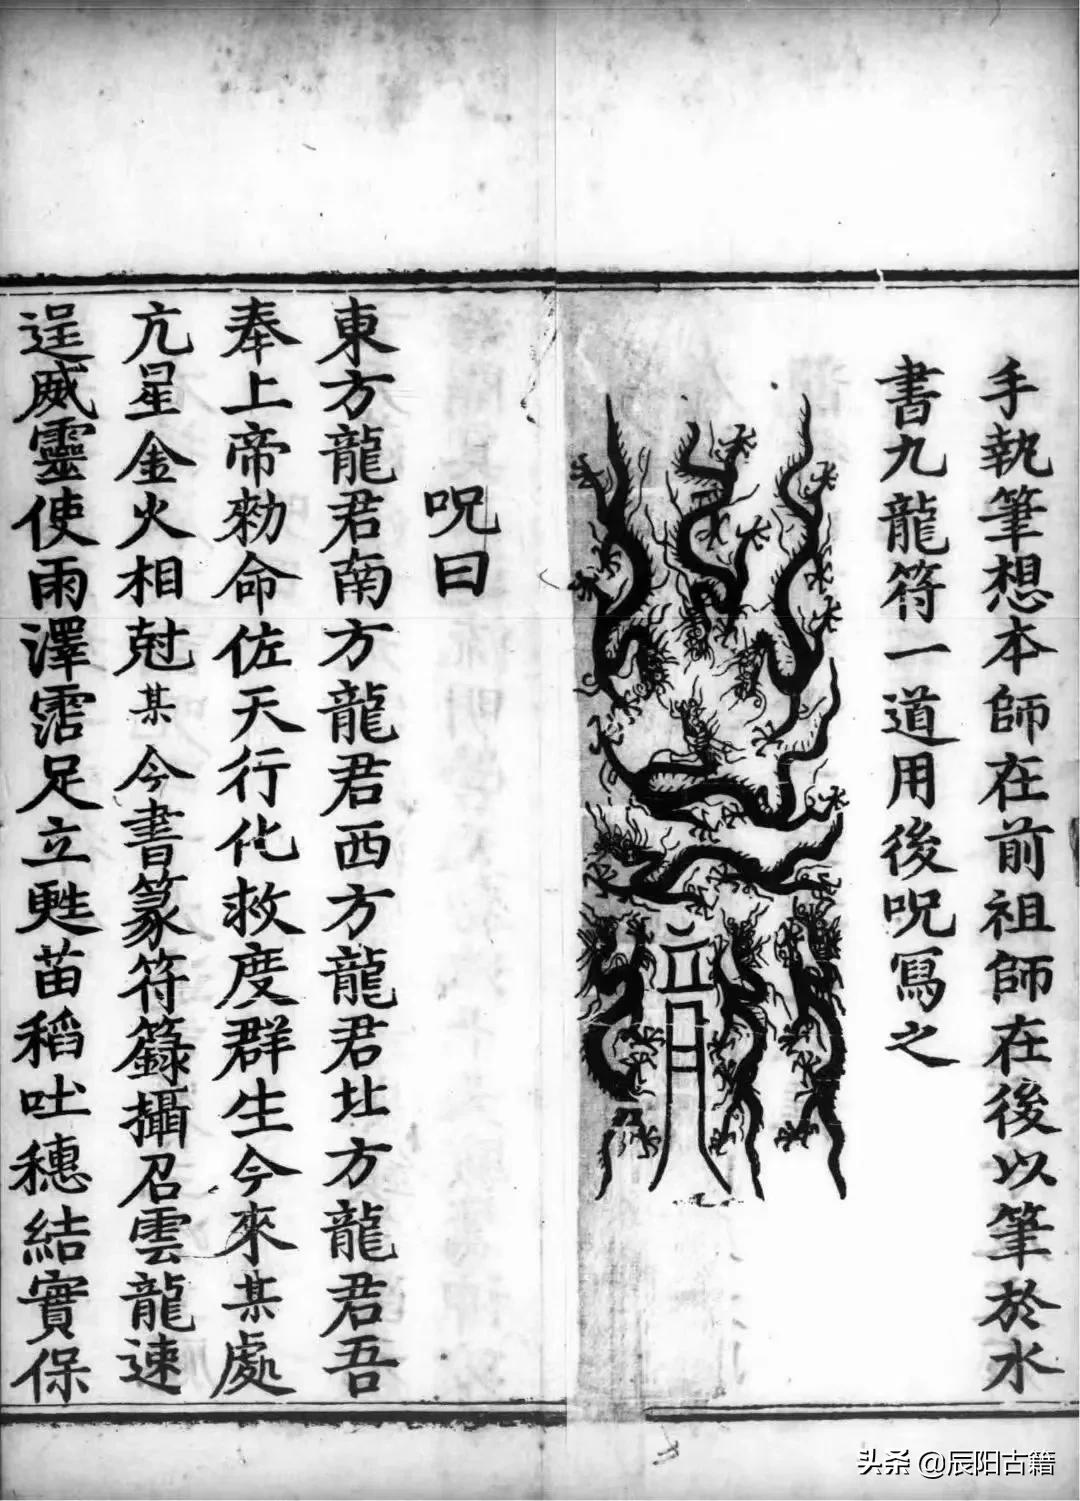 手執筆想本師在前祖師在後以筆於水
書九龍符一道用後呪寫之
呪曰
東方龍君南方龍君西方龍君北方龍君吾
奉上帝勑命佐天行化救度群生今來某處
亢星金火相尅某今書篆符籙攝召雲龍速
逞威靈使雨澤霑足立甦苗稻吐穗結實保
头条 @辰阳古籍